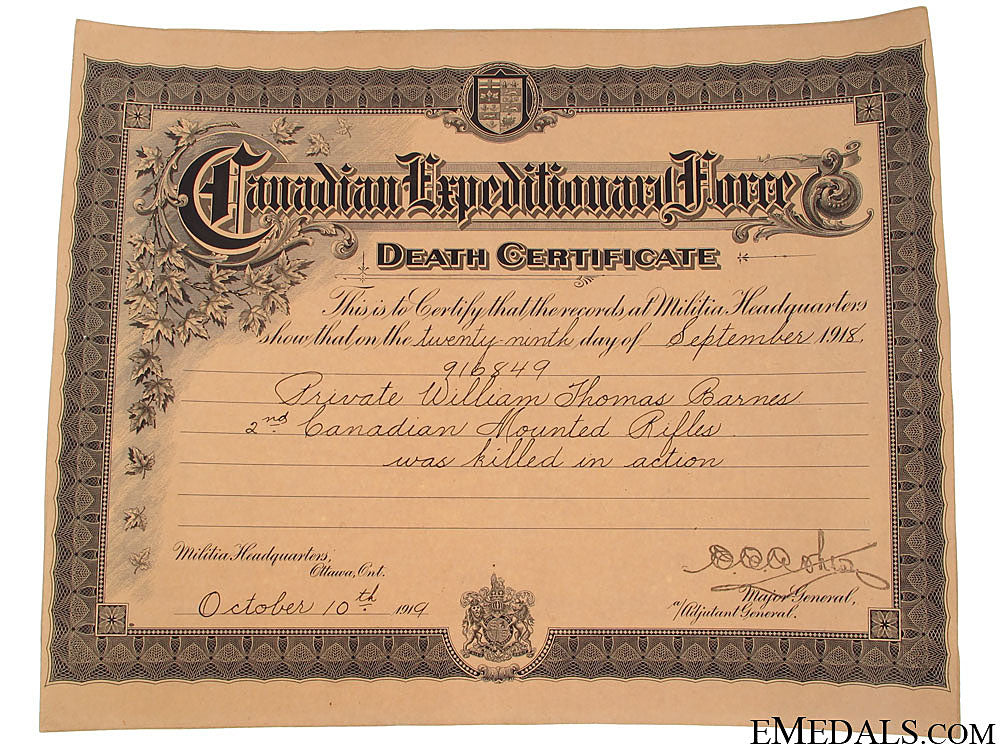 Canadian Expeditionary Force
DEATH CERTIFICATE
This is to Certify that the records at Militia Headquarters
show that on the twenty-ninth day of September 1918,
916849
Private William Thomas Barnes
2nd Canadian Mounted Rifles
was killed in action
Militia Headquarters,
Ottawa, Ont.
October 10th 1919
Major General,
a/Adjutant General.
EMEDALS.COM